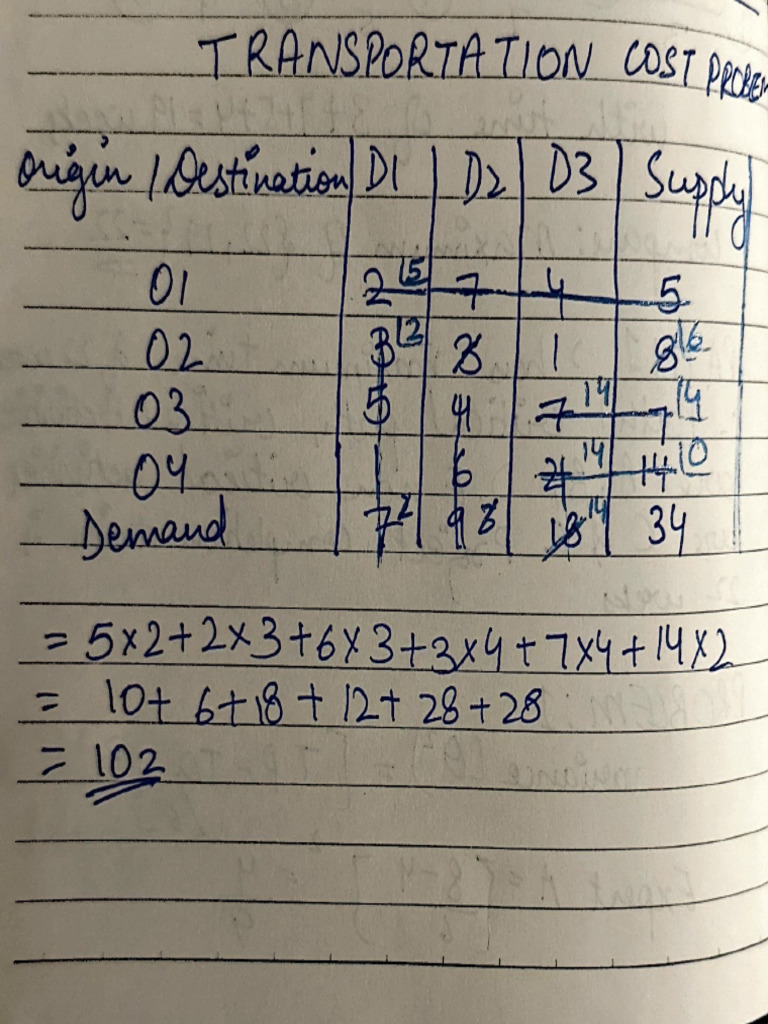 TRANSPORTATION COST PROBEM
Origin / Destination D1 D2 D3 Supply
O1 2 5 7 4 5
O2 3 2 1 8 6
O3 5 4 7 14 7 4
O4 1 6 14 14 0
Demand 7 2 9 18 14 34
= 5x2+2x3+6x3+3x4+7x4+14x2
= 10+ 6+18 + 12+ 28+28
= 102